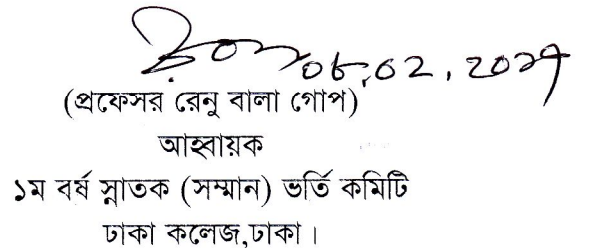 (প্রফেসর রেনু বালা গোপ)
আহ্বায়ক
১ম বর্ষ স্নাতক (সম্মান) ভর্তি কমিটি
ঢাকা কলেজ,ঢাকা।